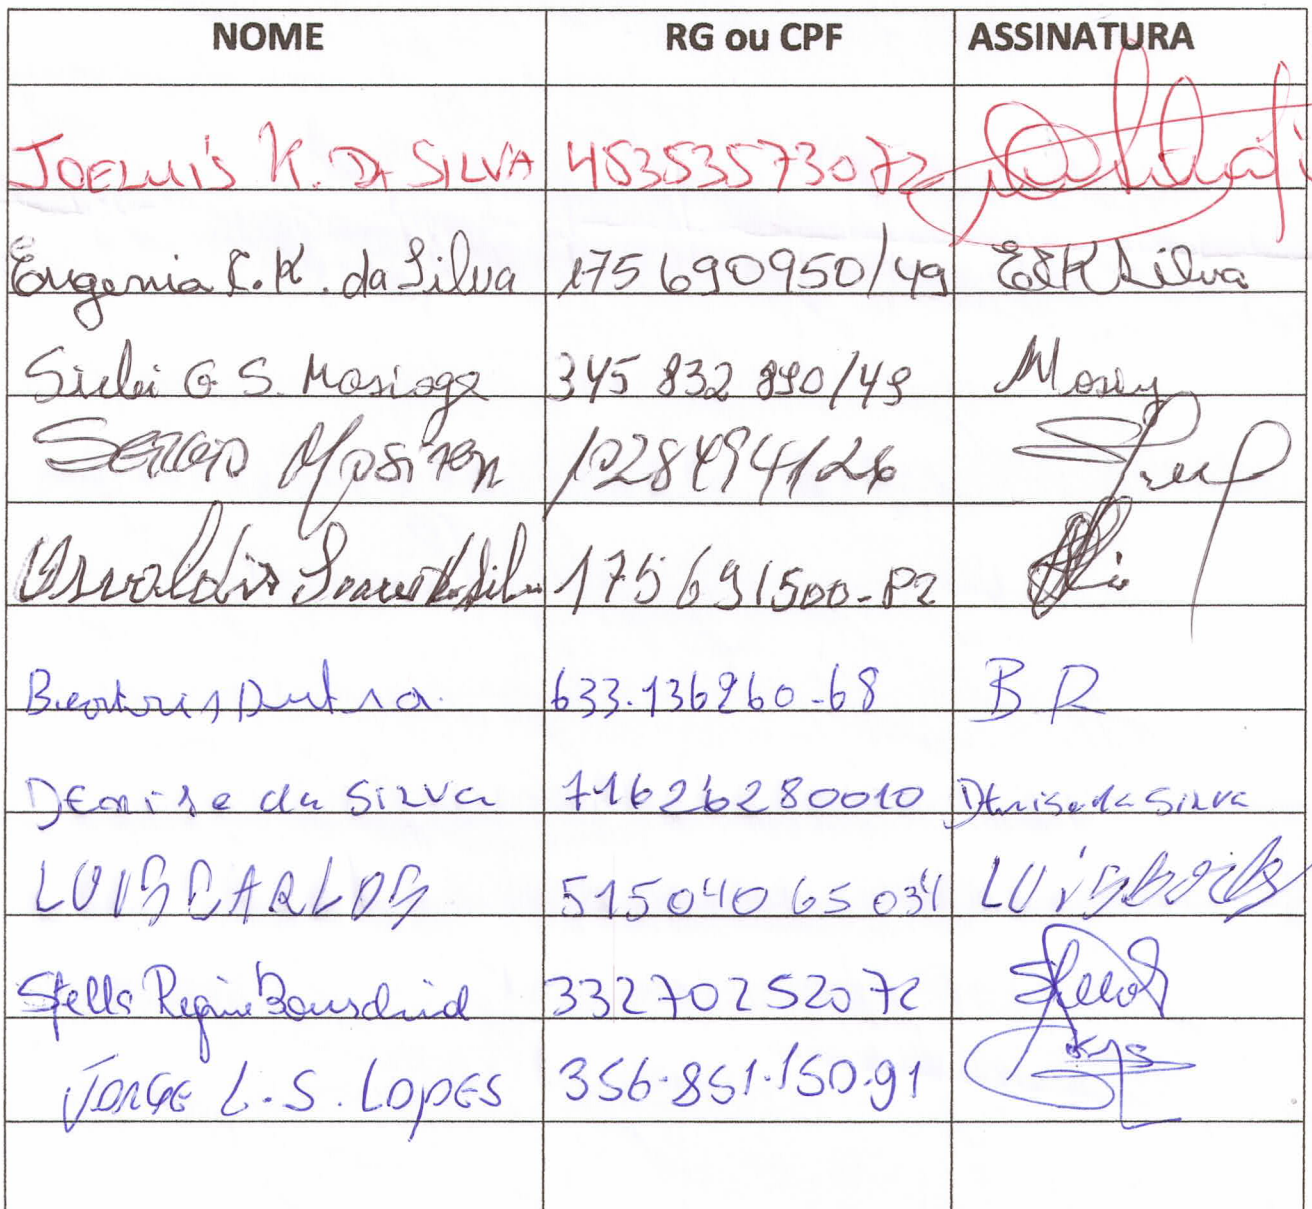 NOME RG ou CPF ASSINATURA
JOELUÍS K. DA SILVA 45353573072
Eugenia E. K. da Silva 175690950/49 EEK Silva
Sirlei G S. 345 832 890/49
SERGIO 1028494126
Osvaldir Soares da Silva 175691500-82
Beatris Dutra 633.136260-68 B D
DENise da SILVA 71626280010 DENise da SILVA
LUIS CARLOS 51504065034 LUIS
Stella Regina 33270252072 Stella
JORGE L. S. LOPES 356.851.150.91